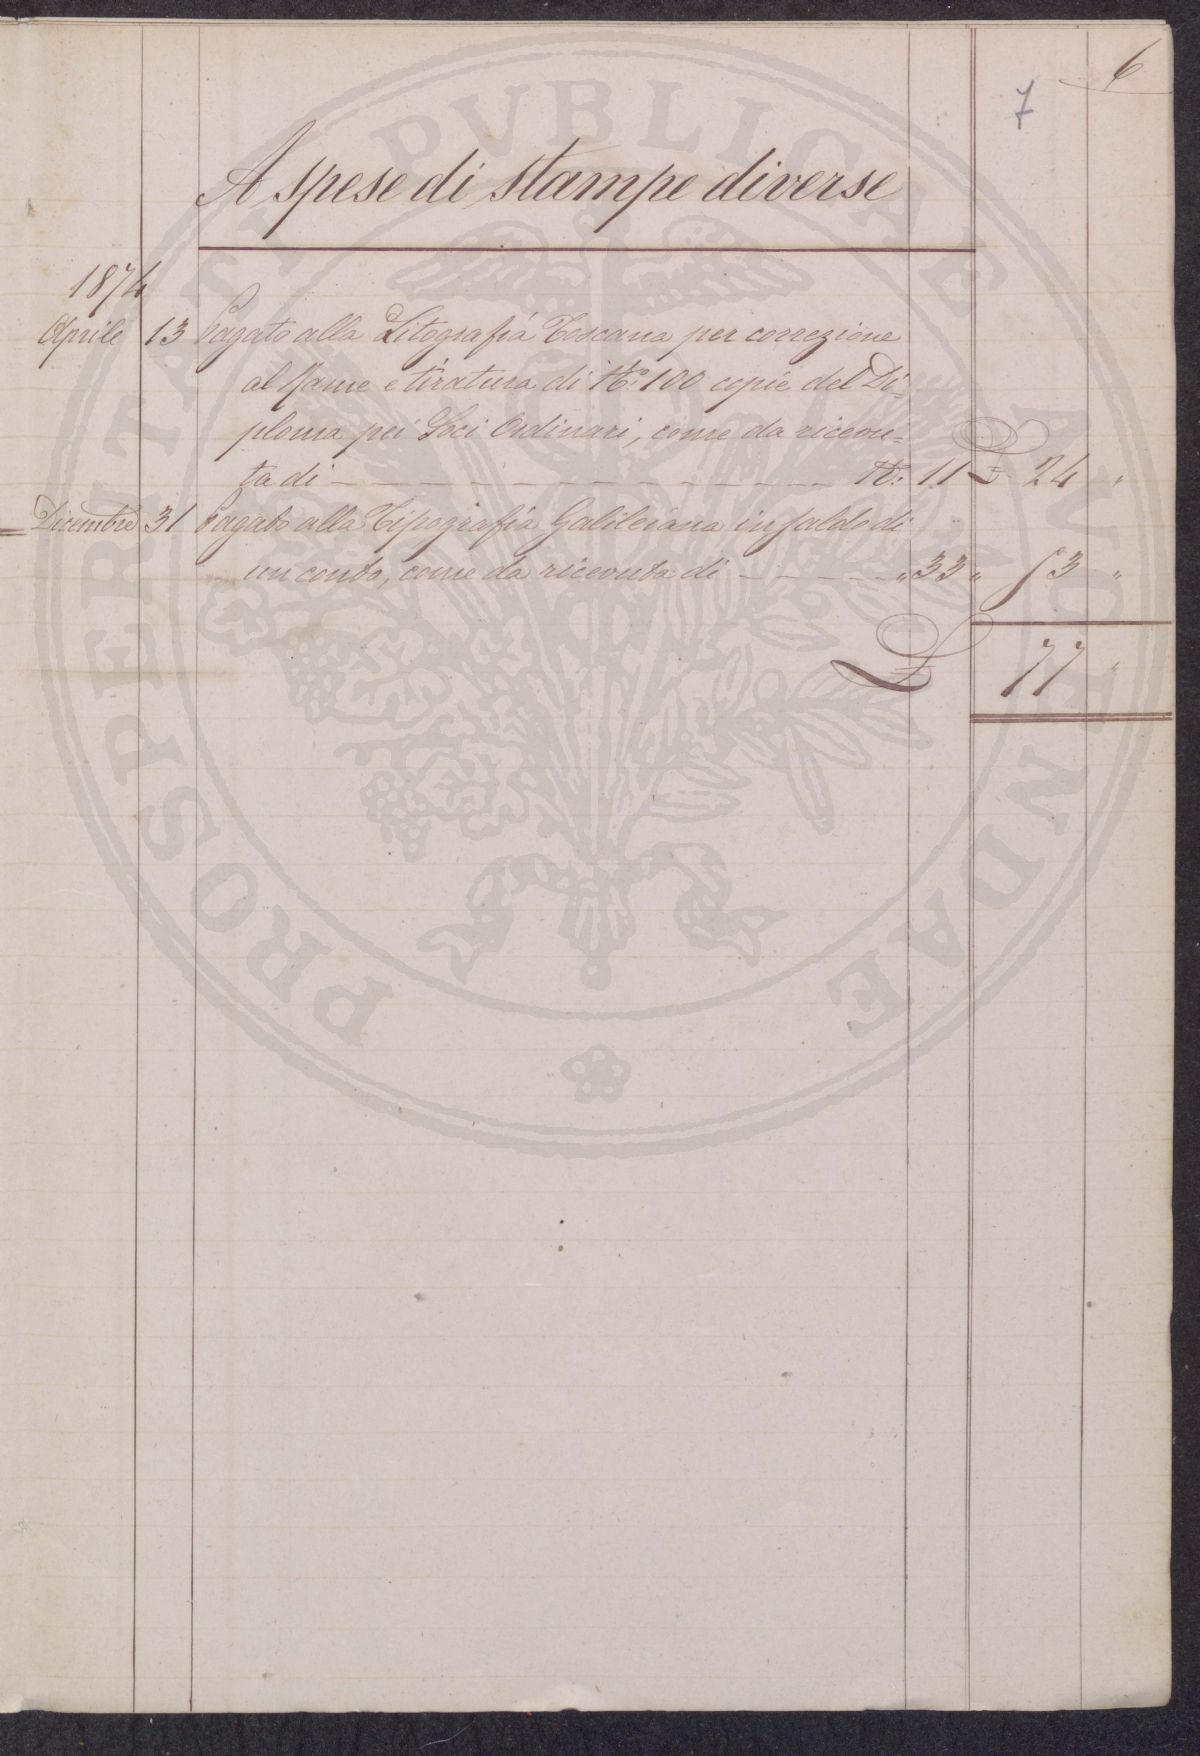 6
7
A spese di stampe diverse
1874
Aprile 13 Pagato alla Litografia Toscana per correzione
al Rame e tiratura di N.° 100 copie del Di=
ploma pei Soci Ordinari, come da ricevu=
ta di — — — N.° 11 £ 24 "
Dicembre 31 Pagato alla Tipografia Galileiana in saldo di
un conto, come da ricevuta di — — — " 33 " 53 "
£ 77 "
PROSPERITATI PVBLICAE AVGENDAE